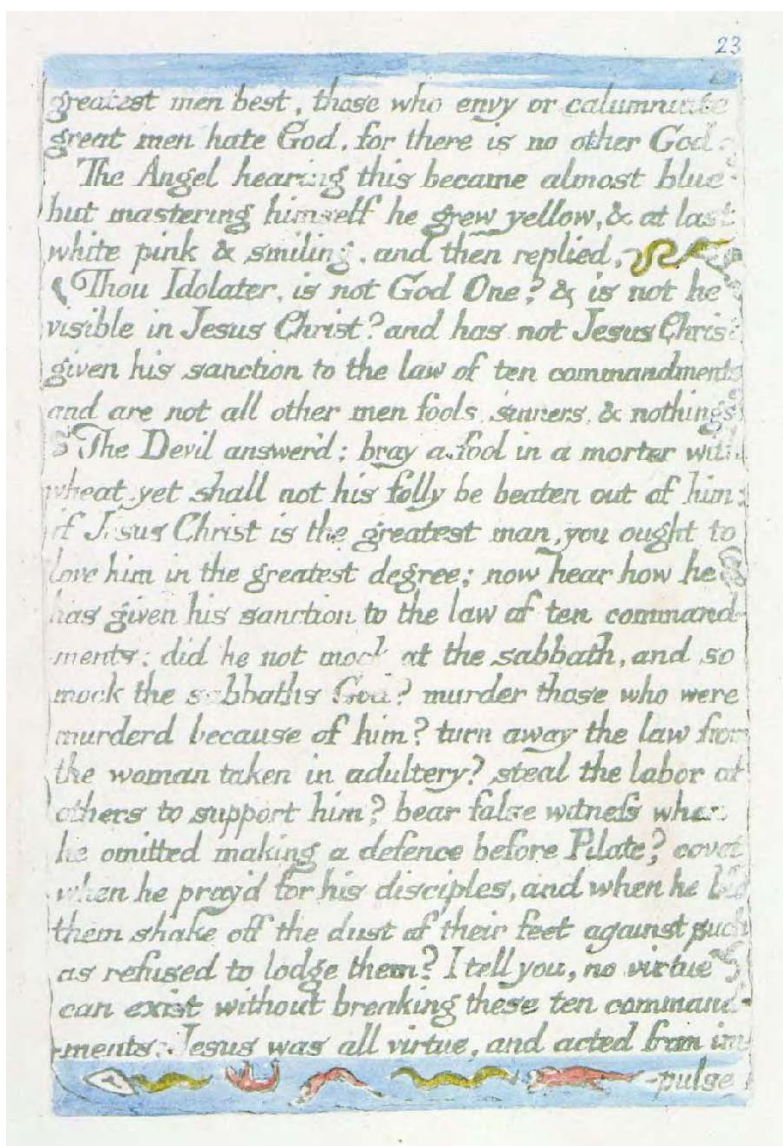 23
greatest men best, those who envy or calumniate
great men hate God, for there is no other God.
The Angel hearing this became almost blue
but mastering himself he grew yellow, & at last
white pink & smiling, and then replied,
Thou Idolater, is not God One? & is not he
visible in Jesus Christ? and has not Jesus Christ
given his sanction to the law of ten commandments
and are not all other men fools, sinners, & nothings
The Devil answer'd; bray a fool in a morter with
wheat, yet shall not his folly be beaten out of him:
if Jesus Christ is the greatest man, you ought to
love him in the greatest degree; now hear how he
has given his sanction to the law of ten command-
ments: did he not mock at the sabbath, and so
mock the sabbaths God? murder those who were
murderd because of him? turn away the law from
the woman taken in adultery? steal the labor of
others to support him? bear false witness when
he omitted making a defence before Pilate? covet
when he pray'd for his disciples, and when he bid
them shake off the dust of their feet against such
as refused to lodge them? I tell you, no virtue
can exist without breaking these ten command-
ments: Jesus was all virtue, and acted from im-
-pulse